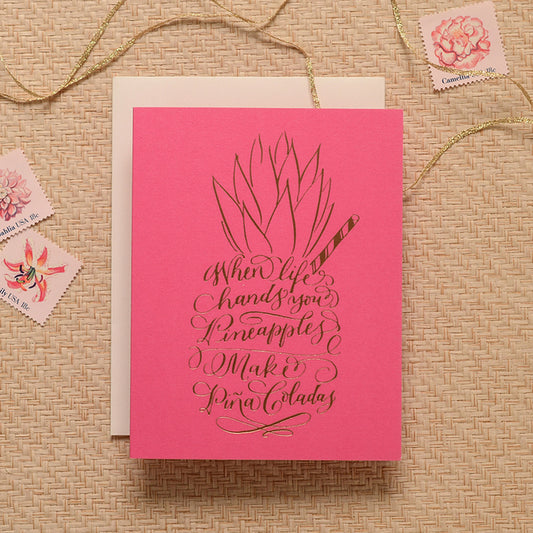 When life
hands you
Pineapples
Make
Piña Coladas
Camellia USA 18c
Dahlia USA 18c
Lily USA 18c